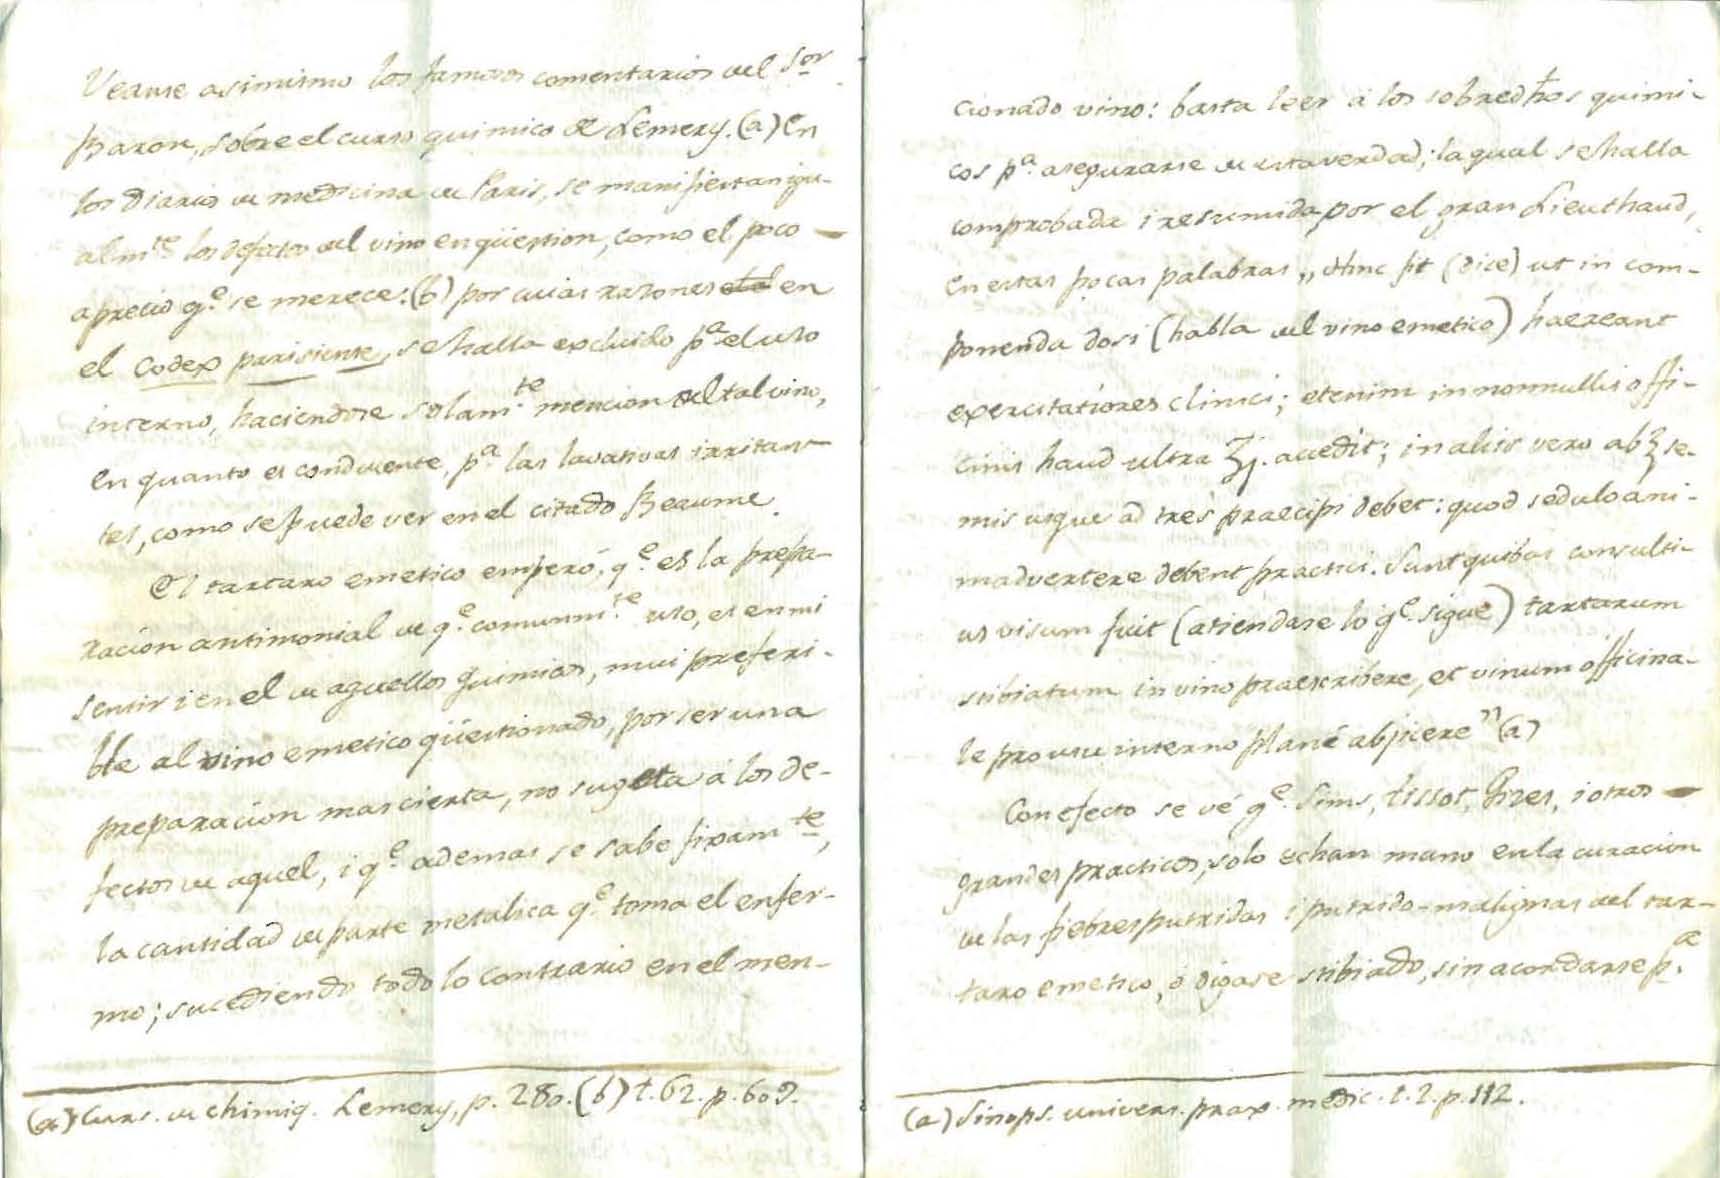 Veanse asimismo los famosos comentarios del Sor.
Baron, sobre el curso quimico de Lemery. (a) En
los Diarios de medicina de Paris, se manifiestan igu-
almte. los defectos del vino en qüestion, como el poco
aprecio qe. se merece: (b) por cuias razones en
el Codex parisiense, se halla excluido pa. el uso
interno, haciendose solamte. mencion del tal vino,
en quanto es conducente, pa. las lavativas irritan-
tes, como se puede ver en el citado Beaume.
El tartaro emetico empero, qe. es la prepa-
racion antimonial de qe. comunmte. uso, es en mi
sentir i en el de aquellos quimicos, mui preferi-
ble al vino emetico qüestionado, por ser una
preparacion mas cierta, no sugeta á los de-
fectos de aquel, i qe. ademas se sabe fixamte.,
la cantidad de parte metalica qe. toma el enfer-
mo; sucediendo todo lo contrario en el men-
(a) Curs. de chimiq. Lemery, p. 280. (b) t. 62. p. 609.
cionado vino: basta leer á los sobredhos quimi-
cos pa. asegurarse de esta verdad; la qual se halla
comprobada i resumida por el gran Lieuthaud,
en estas pocas palabras „ Hinc fit (dice) ut in com-
ponenda dosi (habla del vino emetico) haereant
exercitatiores clinici; etenim in nonnullis offi-
cinis haud ultra ʒj. accedit; in aliis vero ab ℥ se-
mis usque ad tres praecipi debet: quod sedulo ani-
madvertere debent practici. Sunt quibus consulti-
us visum fuit (atiendase lo qe. sigue) tartarum
stibiatum in vino praescribere, et vinum officina-
le pro usu interno plané abjicere” (a)
Con efecto se vé qe. Sims, Tissot, i otros
grandes practicos, solo echan mano en la curacion
de las fiebres putridas i putrido-malignas del tar-
taro emetico, ó digase stibiado, sin acordarse pa.
(a) Sinops. univers. prax. medic. t. 2. p. 112.